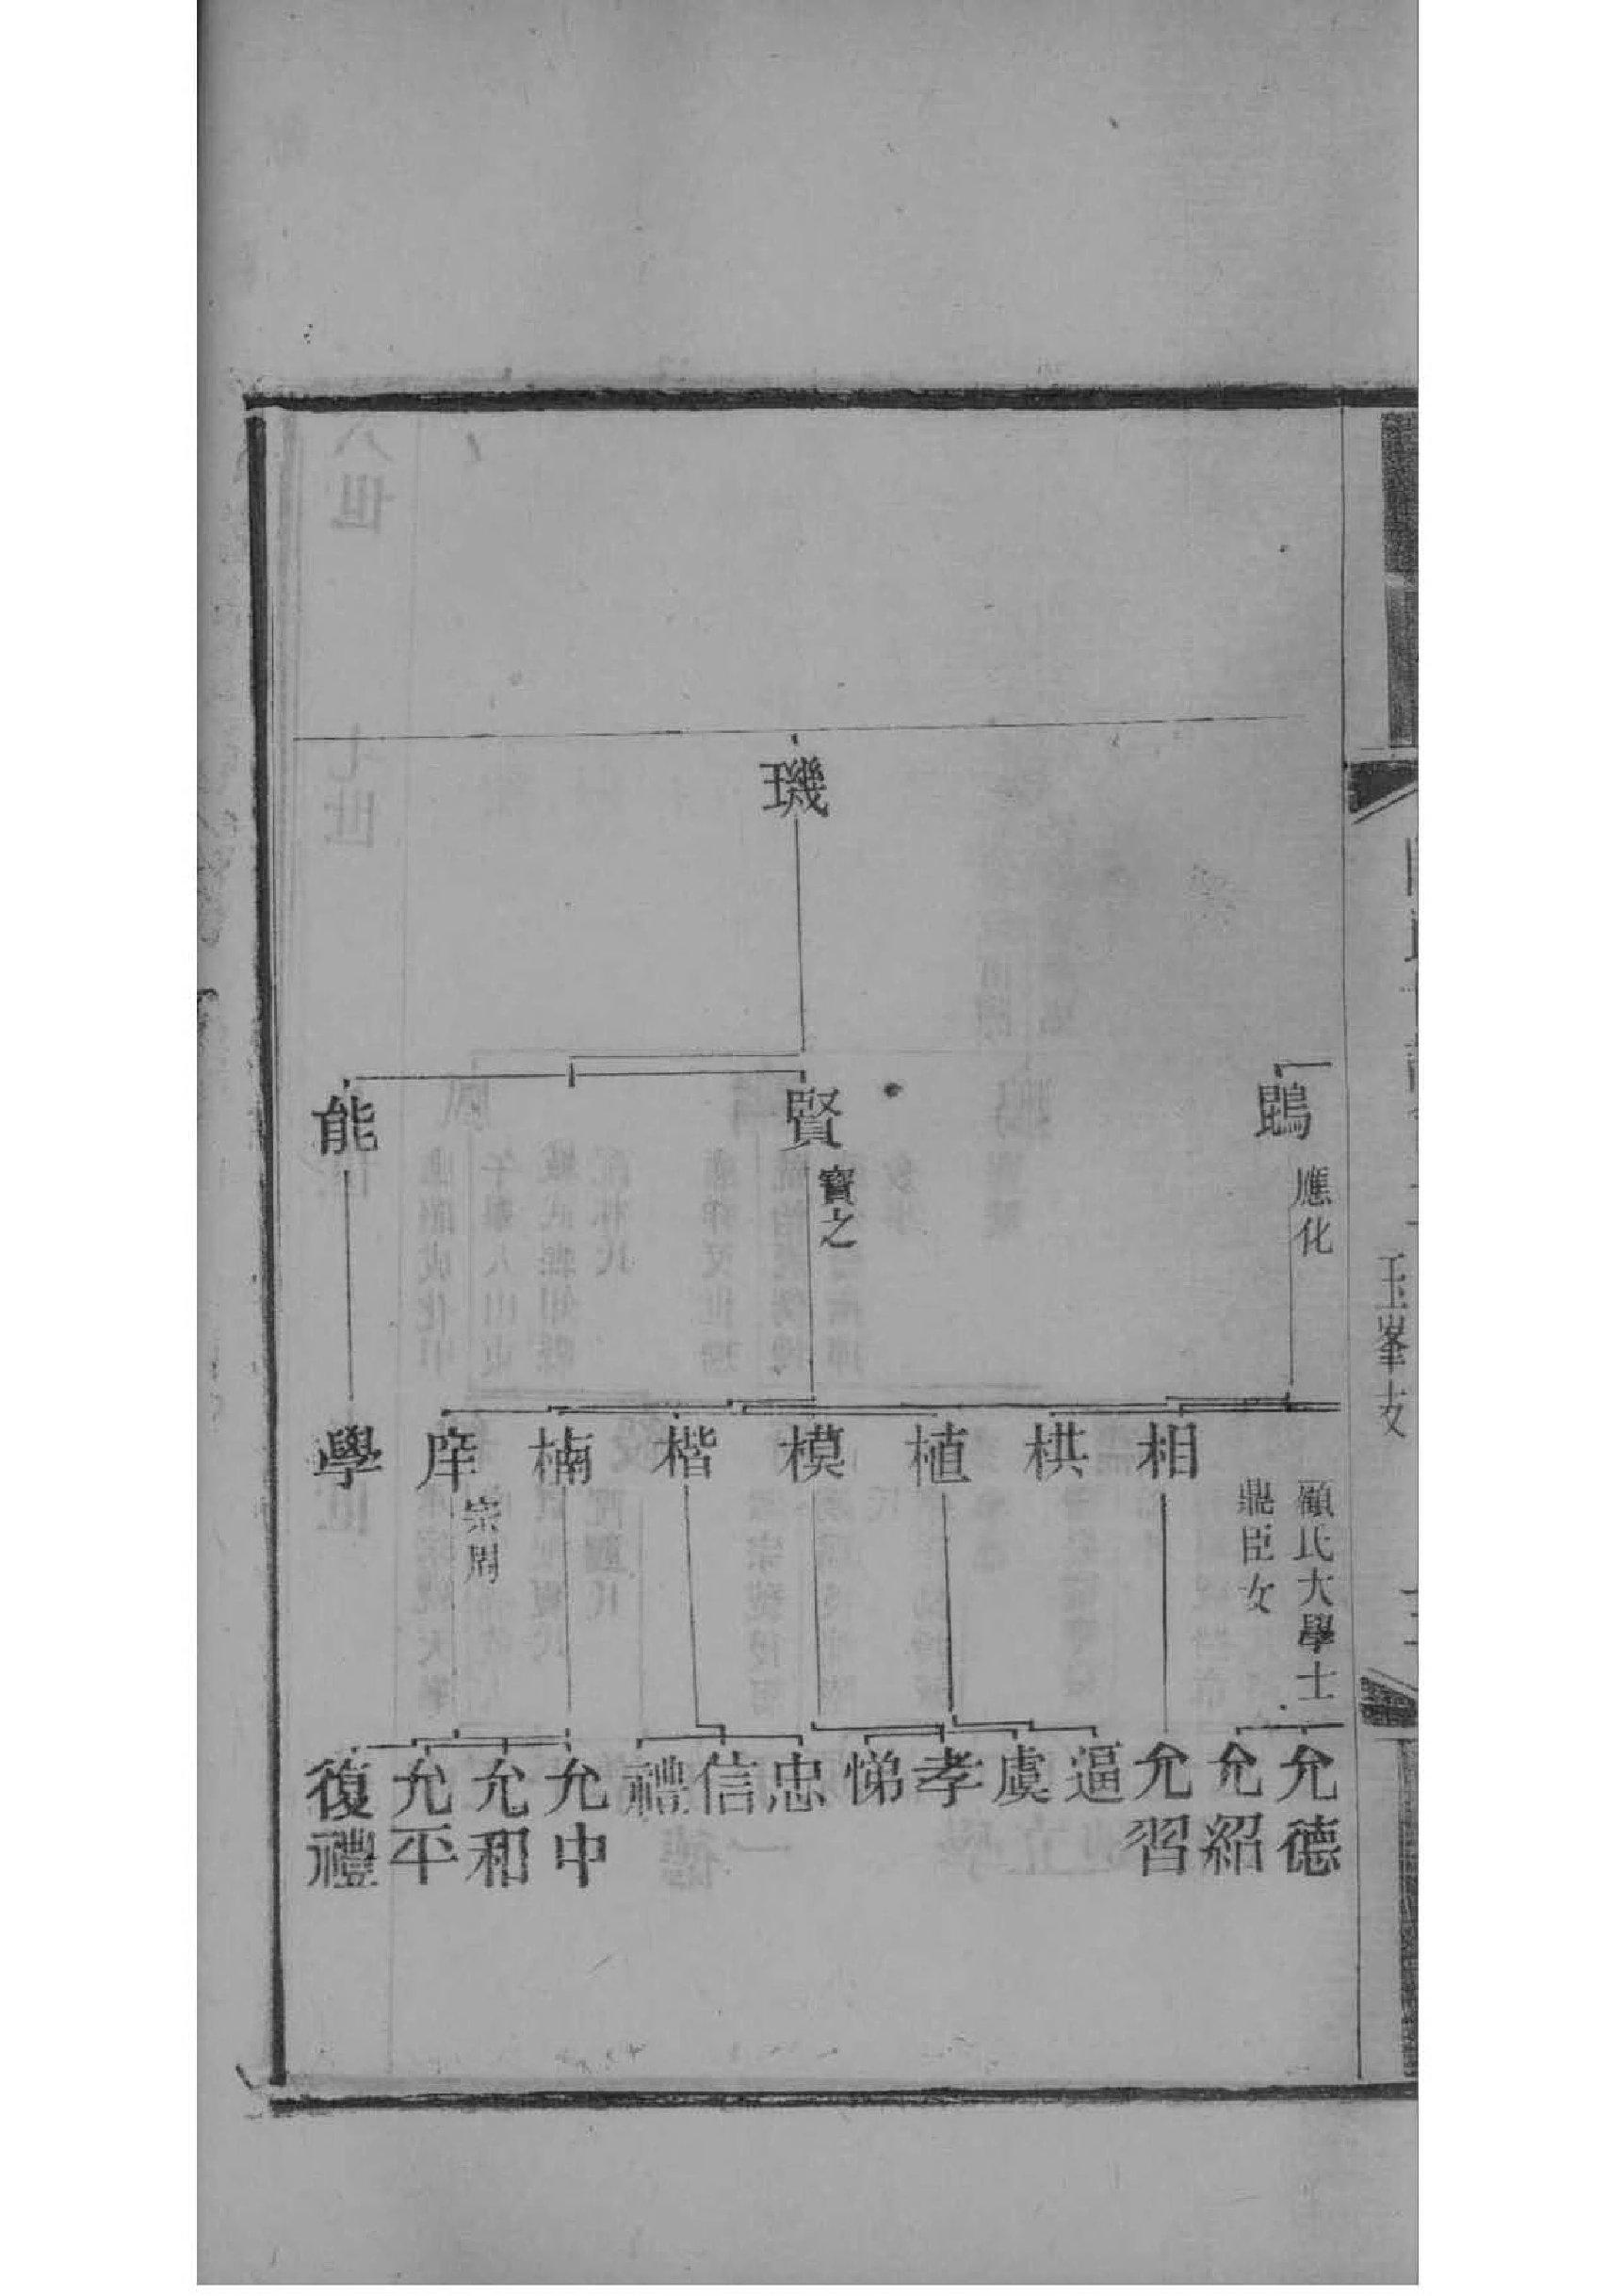 玉峯支
璣
鵾
應化
賢
寶之
能
顧氏大學士
鼎臣女
相
栱
植
模
楷
楠
庠
宗周
學
允德
允紹
允習
逼
虞
孝
悌
忠
信
禮
允中
允和
允平
復禮